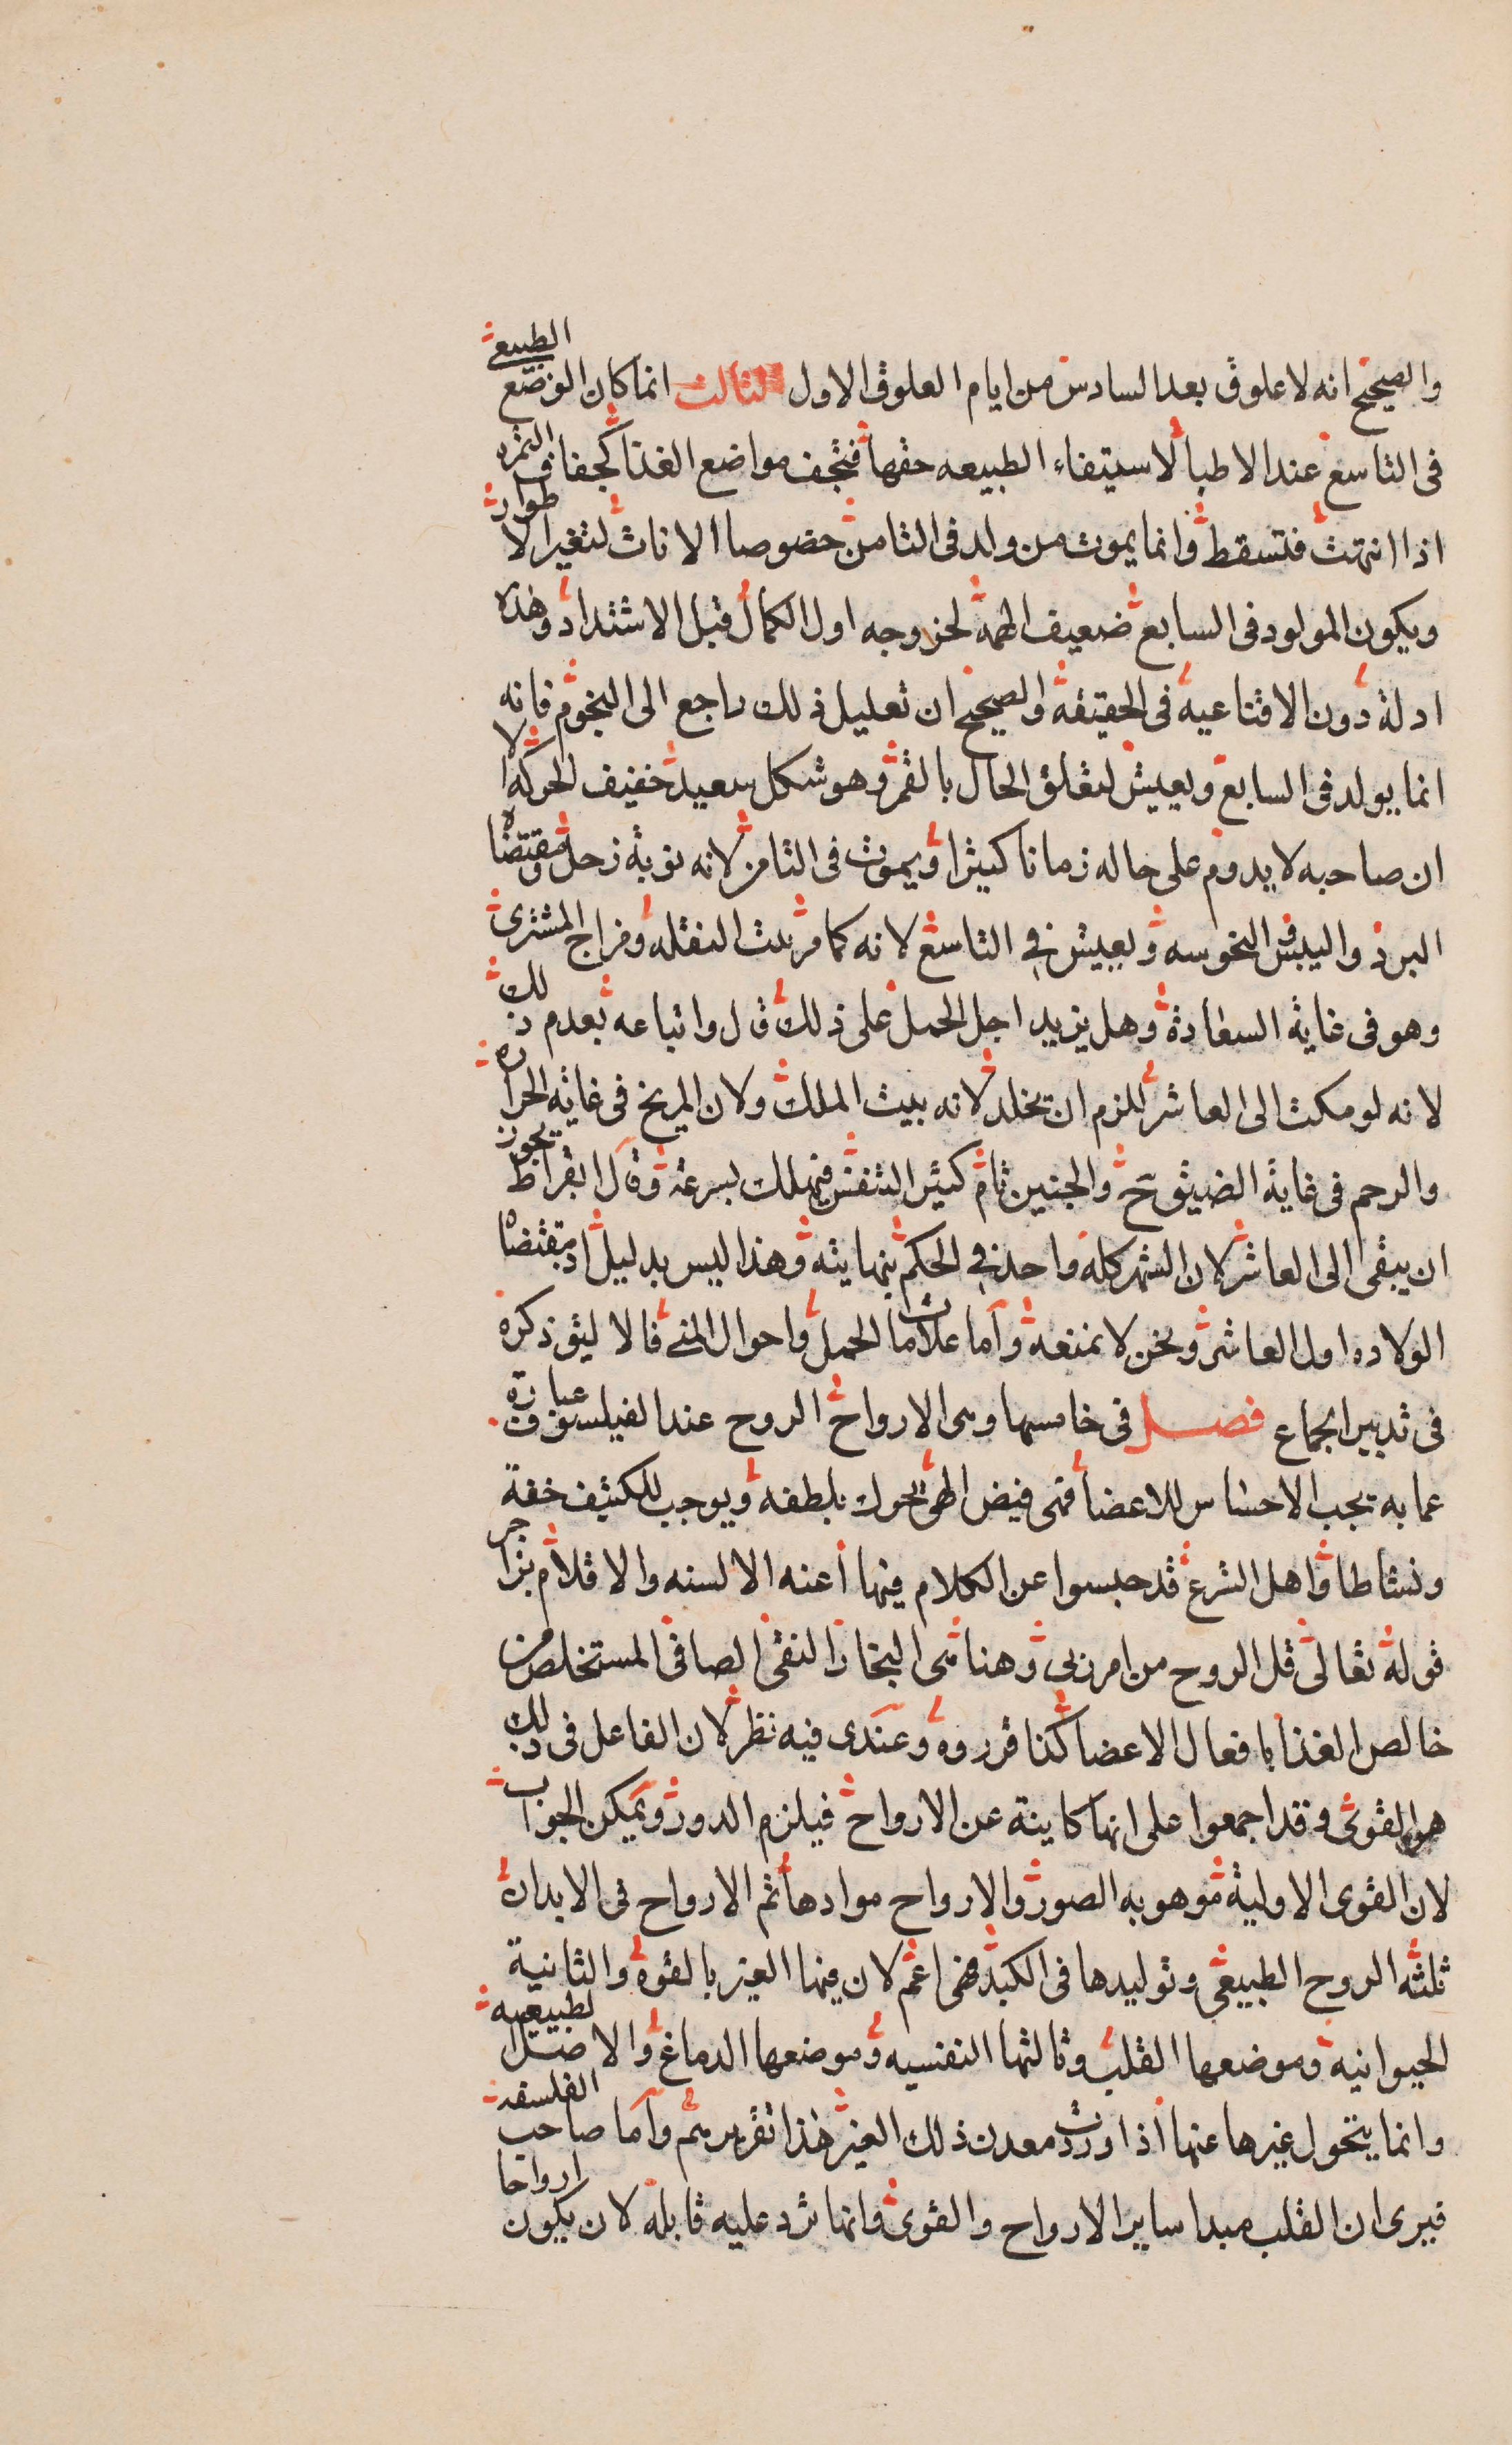 والصحيح انه لا علوق بعد السادس من ايام العلوق الاول الثالث انما كان الوضع الطبيعى
فى التاسع عند الاطبا لاستيفاء الطبيعه حقها فتجف مواضع الغذا كجفاف الثمره
اذا انتهت فتسقط وانما يموت من ولد فى الثامن خصوصا الاناث لتغير الاطوار
ويكون المولود فى السابع ضعيف الهمة لخروجه اول الكمال قبل الاشتداد وهذه
ادلة دون الاقناعية فى الحقيقة والصحيح ان تعليل ذلك راجع الى النجوم فانه
انما يولد فى السابع ويعيش لتعلق الحال بالقمر وهو شكل سعيد خفيف الحركة الا
ان صاحبه لا يدوم على حاله زمانا كثيرا ويموت فى الثامن لانه نوبة زحل ومقتضاه
البرد واليبس والنحوسه ويعيش في التاسع لانه كما مر بيت النقله ومزاج المشترى
وهو فى غاية السعادة وهل يزيد اجل الحمل على ذلك قال واتباعه بعدم ذلك
لانه لو مكث الى العاشر للزم ان يخلد لانه بيت الملك ولان المريخ فى غاية الحراره
والرحم فى غاية الضيق ح والجنين تام كثير التنفس فيهلك بسرعة وقال ابقراط يجوز
ان يبقى الى العاشر لان الشهر كله واحد في الحكم بنهايته وهذا ليس بدليل اذ مقتضاه
الولاده اول العاشر ونحن لا نمنعه واما علامات الحمل واحوال المنى فالاليق ذكره
فى تدبير الجماع فصل فى خامسها وهى الارواح الروح عند الفيلسوف عبارة
عما به يجب الاحساس للاعضا فهى فيض الهى تحرك بلطفه ويوجب للكثيف خفة
ونشاطا واهل الشرع قد حبسوا عن الكلام فيها اعنه الالسنه والاقلام بزاجر
قوله تعالى قل الروح من امر ربى وهنا هى البخار النقى الصافى المستخلص من
خالص الغذا بافعال الاعضا كذا قرروه وعندى فيه نظر لان الفاعل فى ذلك
هو القوى وقد اجمعوا على انها كاينة عن الارواح فيلزم الدور ويمكن الجواب
لان القوى الاولية موهوبه الصور والارواح موادها ثم الارواح فى الابدان
ثلثه الروح الطبيعى وتوليدها فى الكبد فهى اعم لان فيها الغير بالقوة والثانية
الحيوانية وموضعها القلب وثالثها النفسيه وموضعها الدماغ والاصل الطبيعيه
وانما يتحول غيرها عنها اذا وردت معدن ذلك الغير هذا تقريرهم واما صاحب الفلسفه
فيرى ان القلب مبدا ساير الارواح والقوى وانها ترد عليه قابلة لان يكون ارواحا